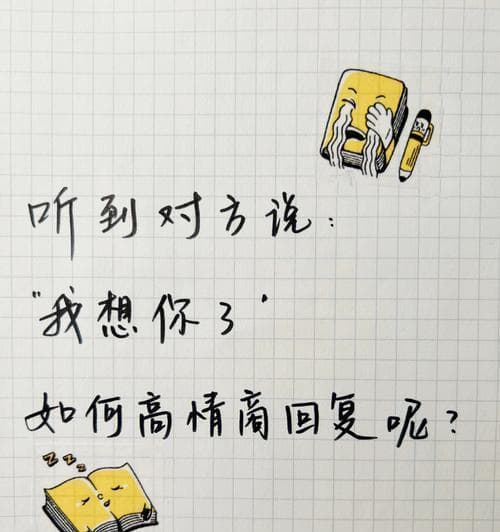 听到对方说:
"我想你了'
如何高情商回复呢?
zzz